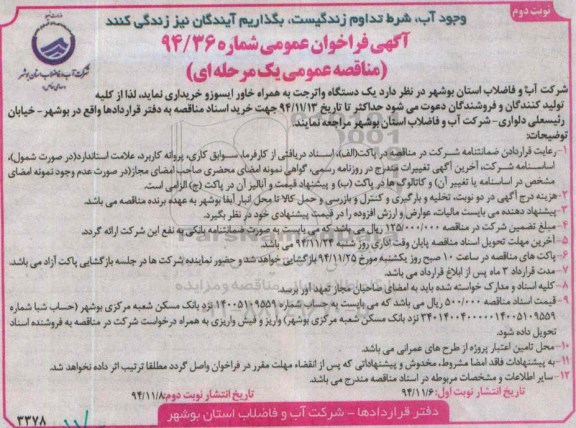 نوبت دوم
وجود آب، شرط تداوم زندگیست، بگذاریم آیندگان نیز زندگی کنند
آگهی فراخوان عمومی شماره ۹۴/۳۶
(مناقصه عمومی یک مرحله ای)
شرکت آب و فاضلاب استان بوشهر
شرکت آب و فاضلاب استان بوشهر در نظر دارد یک دستگاه واترجت به همراه خاور ایسوزو خریداری نماید، لذا از کلیه
تولید کنندگان و فروشندگان دعوت می شود حداکثر تا تاریخ ۹۴/۱۱/۱۳ جهت خرید اسناد مناقصه به دفتر قراردادها واقع در بوشهر - خیابان
رئیسعلی دلواری - شرکت آب و فاضلاب استان بوشهر مراجعه نمایند.
توضیحات:
۱- رعایت قراردادن ضمانتنامه شرکت در مناقصه در پاکت(الف)، اسناد دریافتی از کارفرما، سوابق کاری، پروانه کاربرد، علامت استاندارد(در صورت شمول)،
اساسنامه شرکت، آخرین آگهی تغییرات مندرج در روزنامه رسمی، گواهی نمونه امضای محضری صاحب امضای مجاز(در صورت عدم وجود نمونه امضای
مشخص در اساسنامه یا تغییر آن) و کاتالوگ ها در پاکت (ب) و پیشنهاد قیمت و آنالیز آن در پاکت (ج) الزامی است.
۲- هزینه درج آگهی در دو نوبت، تخلیه و بارگیری و کنترل و بازرسی و حمل کالا تا محل انبار آبفا بوشهر به عهده برنده مناقصه می باشد.
۳- پیشنهاد دهنده می بایست مالیات، عوارض و ارزش افزوده را در قیمت پیشنهادی خود در نظر بگیرد.
۴- مبلغ تضمین شرکت در مناقصه ۱۲۵/۰۰۰/۰۰۰ ریال می باشد که می بایست به صورت ضمانتنامه بانکی به نفع این شرکت ارائه گردد.
۵- آخرین مهلت تحویل اسناد مناقصه پایان وقت اداری روز شنبه ۹۴/۱۱/۲۴ می باشد.
۶- پاکت های مناقصه در ساعت ۱۰ صبح روز یکشنبه مورخ ۹۴/۱۱/۲۵ بازگشایی خواهد شد و حضور نماینده شرکت ها در جلسه بازگشایی پاکت آزاد می باشد.
۷- مدت قرارداد ۳ ماه پس از ابلاغ قرارداد می باشد.
۸- کلیه اسناد و مدارک خواسته شده باید به امضای صاحبان مجاز تعهد آور برسد.
۹- قیمت اسناد مناقصه ۵۰۰/۰۰۰ ریال می باشد که می بایست به حساب شماره ۱۴۰۰۵۱۰۹۵۵۹ نزد بانک مسکن شعبه مرکزی بوشهر (حساب شبا شماره
۳۴۰۱۴۰۰۴۰۰۰۰۰۱۴۰۰۵۱۰۹۵۵۹ نزد بانک مسکن شعبه مرکزی بوشهر) واریز و فیش واریزی به همراه درخواست شرکت در مناقصه به فروشنده اسناد
تحویل داده شود.
۱۰- محل تامین اعتبار پروژه از طرح های عمرانی می باشد.
۱۱- به پیشنهادات فاقد امضا مشروط، مخدوش و پیشنهاداتی که پس از انقضاء مهلت مقرر در فراخوان واصل گردد مطلقا ترتیب اثر داده نخواهد شد.
۱۲- سایر اطلاعات و مشخصات مربوطه در اسناد مناقصه مندرج می باشد.
تاریخ انتشار نوبت اول: ۹۴/۱۱/۶ تاریخ انتشار نوبت دوم: ۹۴/۱۱/۸
دفتر قراردادها - شرکت آب و فاضلاب استان بوشهر
۳۳۷۸